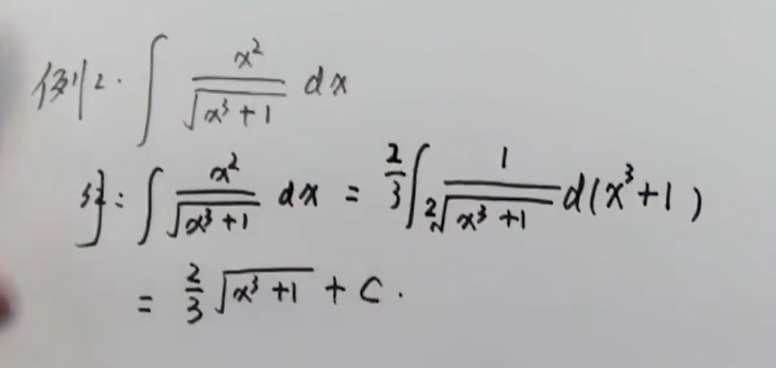 例2. ∫ x²/√(x³+1) dx
解: ∫ x²/√(x³+1) dx = 2/3 ∫ 1/(2√(x³+1)) d(x³+1)
= 2/3 √(x³+1) + C.